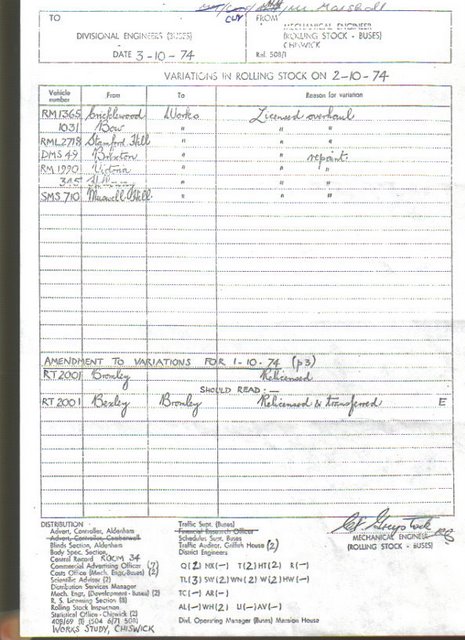 Marshall
TO
CUY
FROM
DIVISIONAL ENGINEERS (BUSES)
MECHANICAL ENGINEER
(ROLLING STOCK - BUSES)
CHISWICK
DATE 3-10-74
Ref. 508/1
VARIATIONS IN ROLLING STOCK ON 2-10-74
Vehicle number From To Reason for variation
RM1365 Cricklewood Works Licensed overhaul
1031 Bow " " "
RML2718 Stamford Hill " " "
DMS 49 Brixton " " repaint
RM 1990 Victoria " " "
345 " " "
SMS 710 Muswell Hill " " "
AMENDMENT TO VARIATIONS FOR 1-10-74 (p3)
RT2001 Bromley Relicensed
SHOULD READ:-
RT2001 Bexley Bromley Relicensed & transferred E
DISTRIBUTION
Advert. Controller, Aldenham
Advert. Controller, Camberwell
Blinds Section, Aldenham
Body Spec. Section,
Central Record ROOM 34
Commercial Advertising Officer (7)
Costs Office (Mech. Engr. Buses) (2)
Scientific Adviser (2)
Distribution Services Manager
Mech. Engr. (Development - Buses) (2)
R. S. Licensing Section (3)
Rolling Stock Inspection
Statistical Office - Chiswick (2)
WORKS STUDY, CHISWICK
408/69 (R) 1504 6/71 5011
Traffic Supt. (Buses)
Financial Research Officer
Schedules Supt. Buses
Traffic Auditor, Griffith House (2)
District Engineers
Q(2) NX(-) T(2) HT(2) R(-)
TL(3) SW(2) WN(2) W(2) HW(-)
TC(-) AR(-)
AL(-) WH(2) U(-) AV(-)
Divl. Operating Manager (Buses) Mansion House
MECHANICAL ENGINEER
(ROLLING STOCK - BUSES)